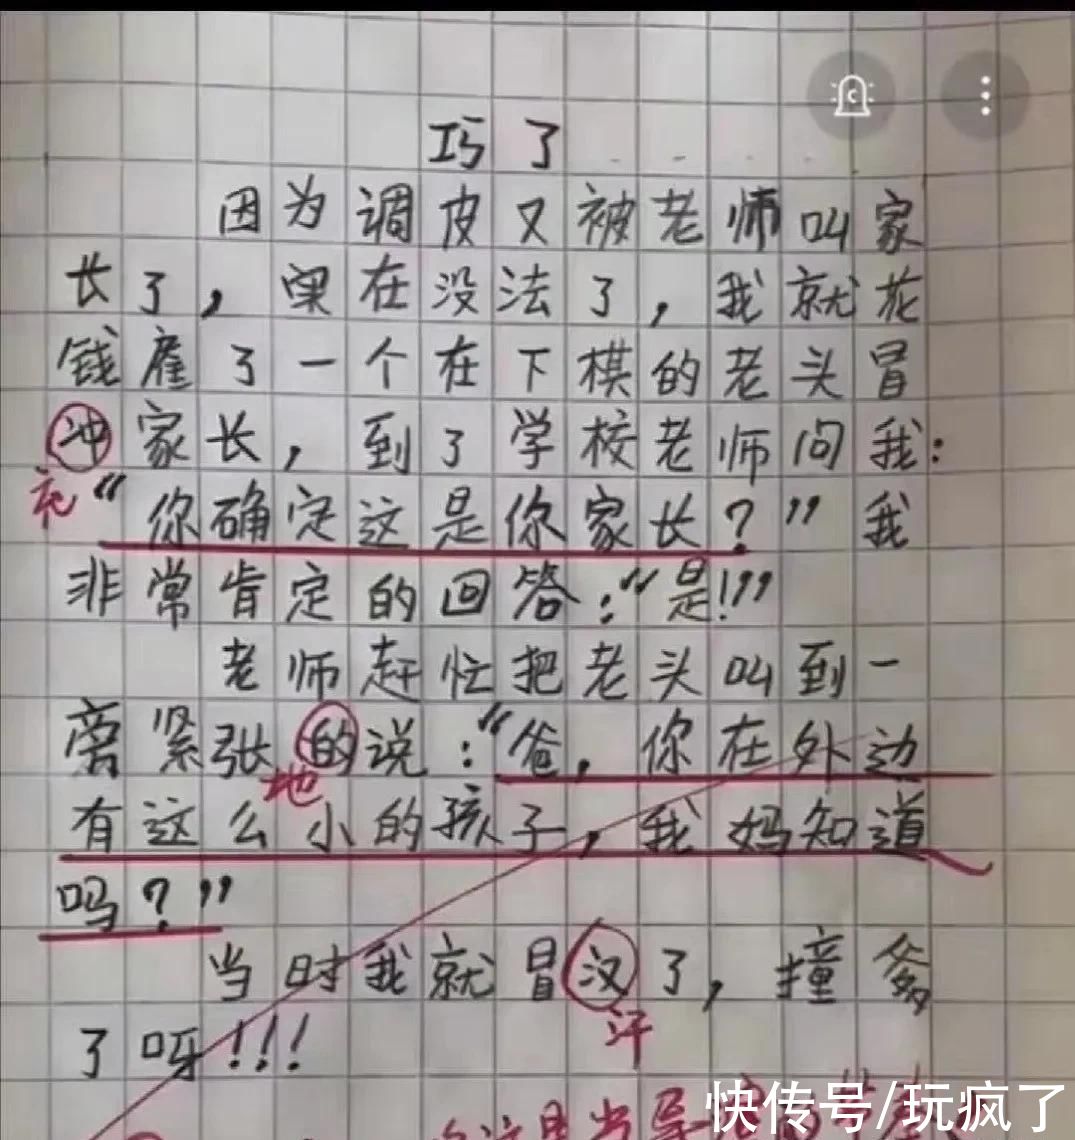 巧了
因为调皮又被老师叫家
长了，实在没法了，我就花
钱雇了一个在下棋的老头冒
冲家长，到了学校老师问我：
充
“你确定这是你家长？”我
非常肯定的回答：“是！”
老师赶忙把老头叫到一
旁紧张的说：“爸，你在外边
地
有这么小的孩子，我妈知道
吗？”
当时我就冒汉了，撞爹
汗
了呀！！！
快传号/玩疯了